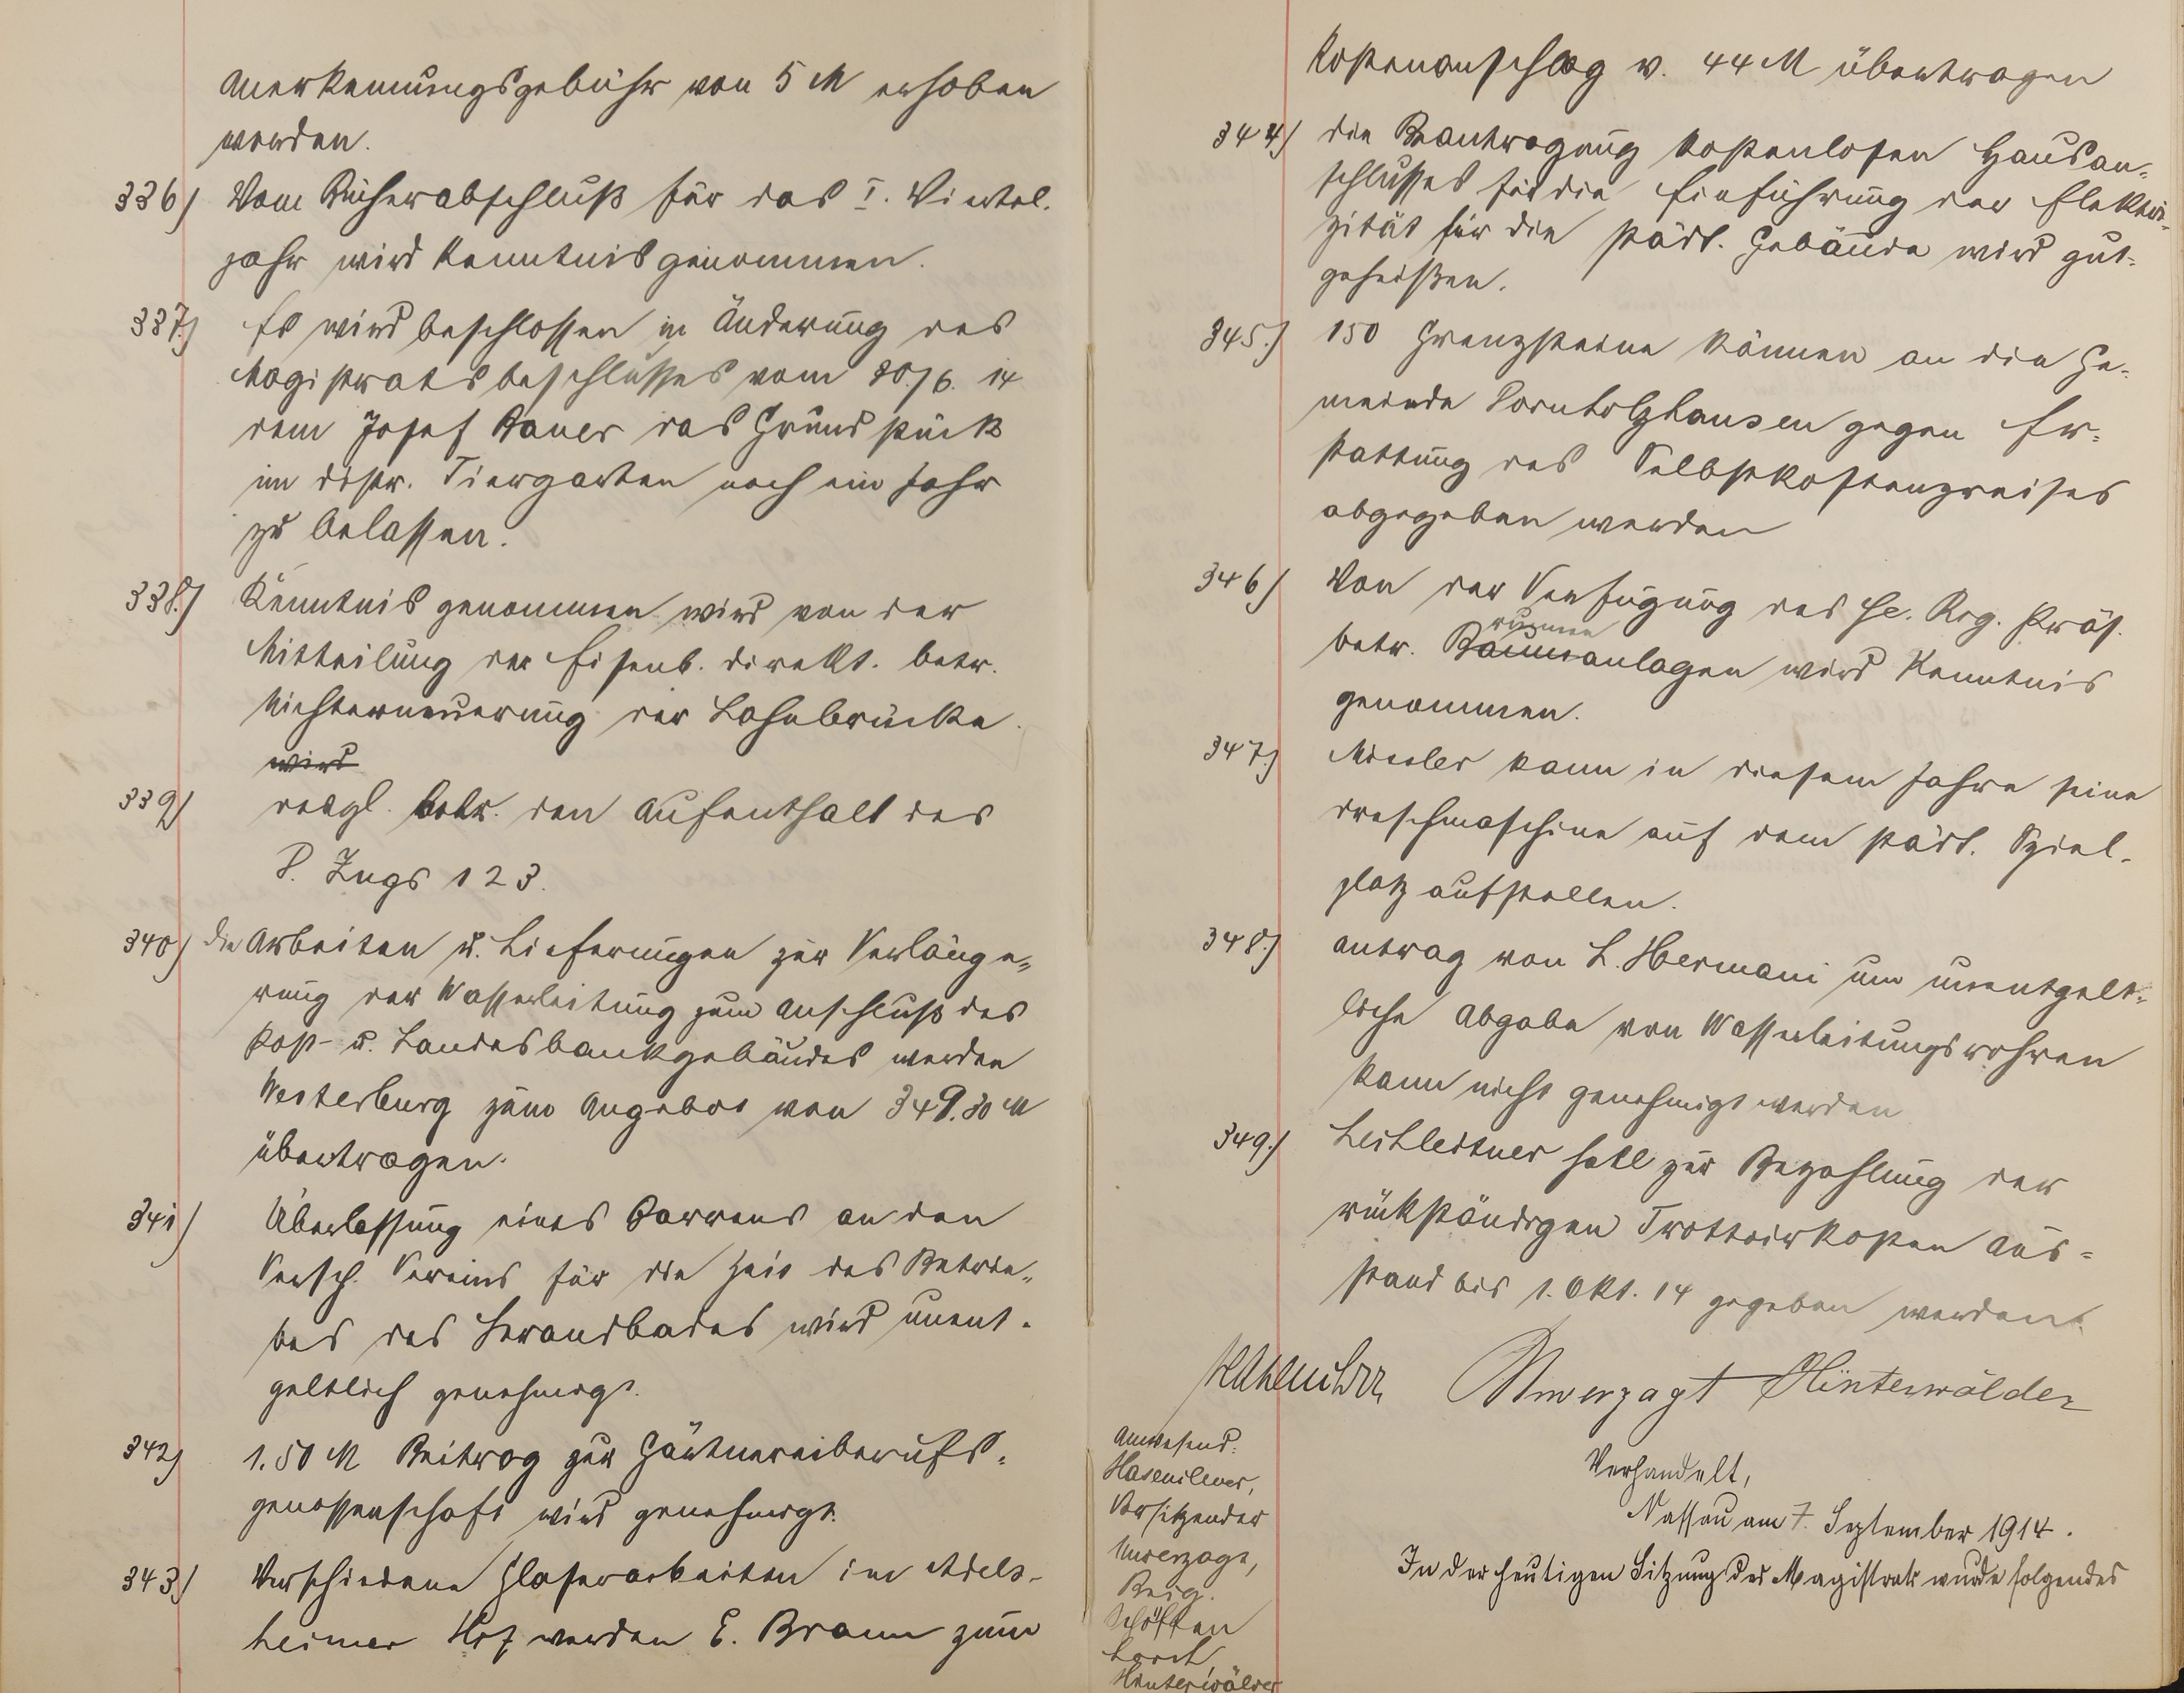 Anerkennungsgebühr von 5 M erhoben
werden.
336) Vom Bücherabschluß für das I. Viertel-
jahr wird Kenntnis genommen.
337.) Es wird beschlossen in Änderung des
Magistratsbeschlusses vom 30./6. 14
dem Josef Bauer das Grundstück
im distr. Tiergarten noch ein Jahr
zu belassen.
338.) Kenntnis genommen wird von der
Mitteilung der Eisenb. direkt. betr.
Nichterneuerung der Lahnbrücke.
wird
339) desgl. betr. den Aufenthalt des
P. Zugs 123.
340) die Arbeiten u. Lieferungen zur Verlänge-
rung der Wasserleitung zum Anschluß des
Post- u. Landesbankgebäudes werden
Westerburg zum Angebot von 349.30 M
übertragen.
341) Überlassung eines Barrens an den
Versch. Vereins für die Zeit des Betrie-
bes des Strandbades wird unent-
geltlich genehmigt.
342) 1.50 M Beitrag zur Gärtnereiberufs-
genossenschaft wird genehmigt.
343) Verschiedene Glaserarbeiten im Adels-
heimer Hof werden E. Braun zum
Kostenanschlag v. 44 M übertragen
344) die Beantragung kostenlosen Hausan-
schlusses für die Einführung der Elektri-
zität für die städt. Gebäude wird gut-
geheißen.
345.) 150 Grenzsteine können an die Ge-
meinde Dornholzhausen gegen Er-
stattung des Selbstkostenpreises
abgegeben werden
346) Von der Verfügung des H. Reg. Präs.
betr. Brunnenanlagen wird Kenntnis
genommen.
347.) kann in diesem Jahre seine
dreschmaschine auf dem städt. Spiel-
platz aufstellen.
348.) Antrag von L. Hermani um unentgelt-
liche Abgabe von Wasserleitungsrohren
kann nicht genehmigt werden
349.) Leitleitner soll zur Bezahlung der
rückständigen Trottoirkosten Aus-
stand bis 1. Okt. 14 gegeben werden.
Unverzagt Hinterwälder
Anwesend:
Hasenclever,
Vorsitzender
Unverzagt,
Berg.
Schöffen
Lorch,
Hinterwälder
Verhandelt,
Nassau am 7. September 1914.
In der heutigen Sitzung des Magistrats wurde folgendes